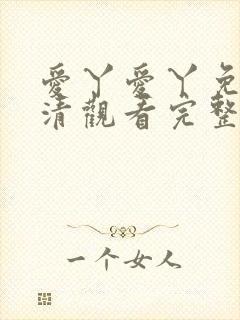 愛丫愛丫免
清觀看完整
一个女人